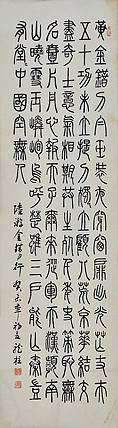 黃金錯刀白玉裝夜穿窗扉出光芒丈夫
五十功未立提刀獨立顧八荒京華結交
盡奇士意氣相期共生死千年史策恥無
名一片丹心報天子爾來從軍天漢濱南
山曉雪玉嶙峋嗚呼楚雖三戶能亡秦豈
有堂堂中國空無人
陸游金錯刀行 癸未年初夏